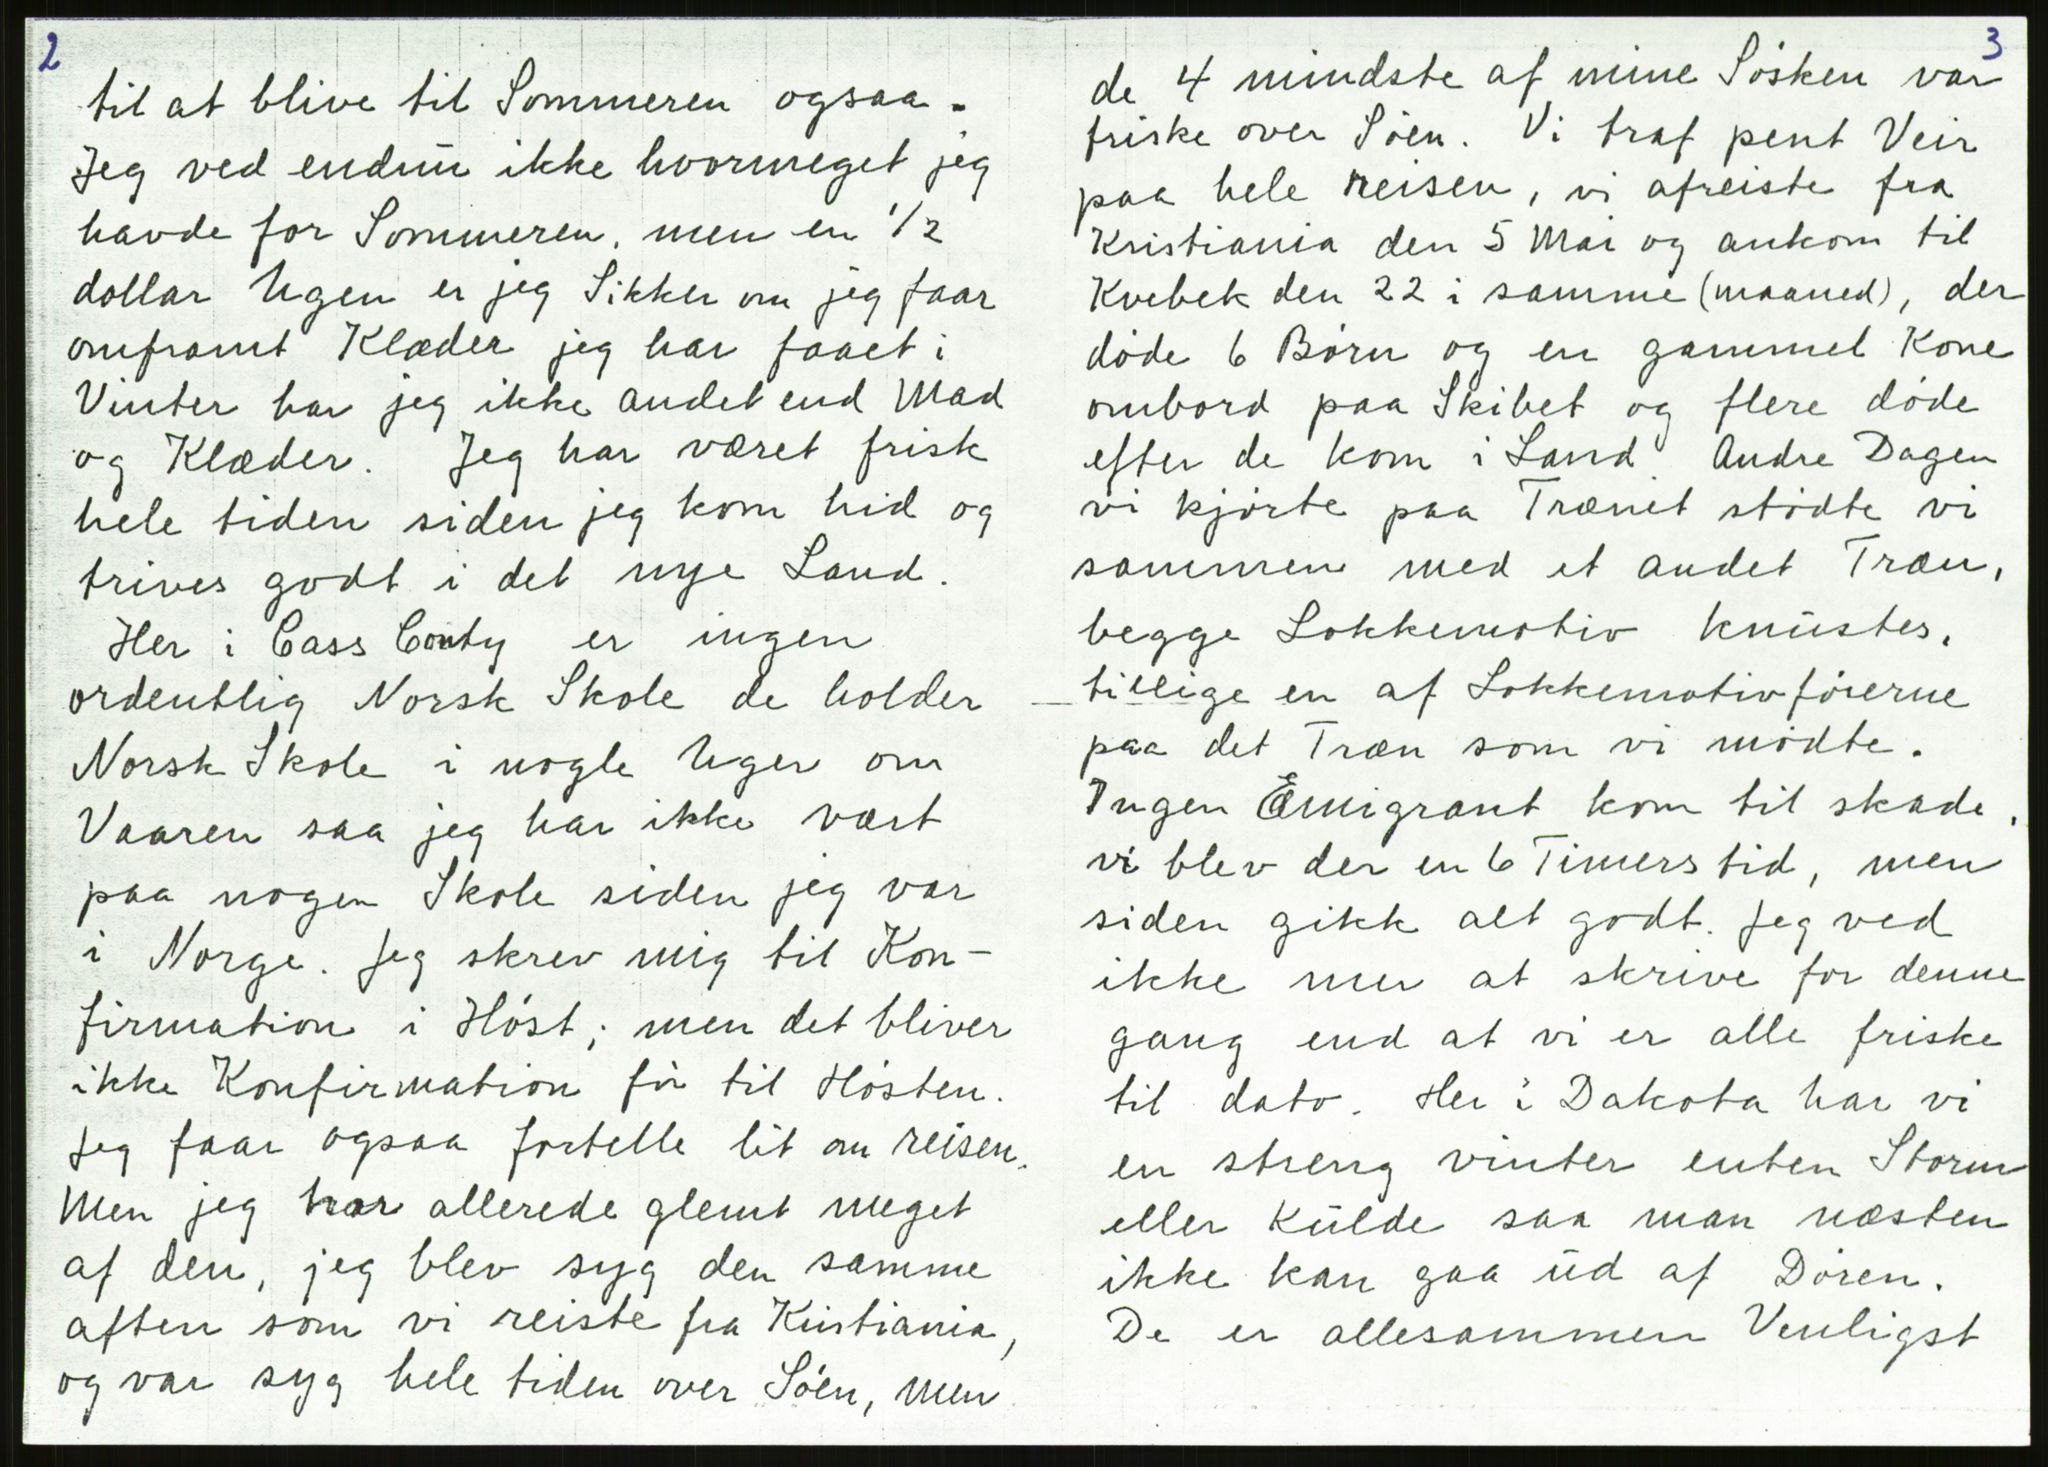 2
til at blive til Sommeren ogsaa.
Jeg ved endnu ikke hvormeget jeg
havde for Sommeren, men en 1/2
dollar Ugen er jeg Sikker om jeg faar
omframt Klæder jeg har faaet i
Vinter har jeg ikke andet end Mad
og Klæder. Jeg har været frisk
hele tiden siden jeg kom hid og
trives godt i det nye Land.
Her i Cass Conty er ingen
ordentlig Norsk Skole de holder
Norsk Skole i nogle Uger om
Vaaren saa jeg har ikke vært
paa nogen Skole siden jeg var
i Norge. Jeg skrev mig til Kon-
firmation i Høst; men det bliver
ikke Konfirmation før til Høsten.
Jeg faar ogsaa fortelle lit om reisen.
Men jeg har allerede glemt meget
af den, jeg blev syg den samme
aften som vi reiste fra Kristiania,
og var syg hele tiden over Søen, men
3
de 4 mindste af mine Søsken var
friske over Søen. Vi traf pent Veir
paa hele reisen, vi afreiste fra
Kristiania den 5 Mai og ankom til
Kvebek den 22 i samme (maaned), der
døde 6 Børn og en gammel Kone
ombord paa Skibet og flere døde
efter de kom i Land. Andre Dagen
vi kjørte paa Trænet stødte vi
sammen med et andet Træn,
begge Lokkemotiv knustes,
tillige en af Lokkemotivførerne
paa det Træn som vi mødte.
Ingen Emigrant kom til skade,
vi blev der en 6 Timers tid, men
siden gikk alt godt. Jeg ved
ikke mer at skrive for denne
gang end at vi er alle friske
til dato. Her i Dakota har vi
en streng vinter enten Storm
eller Kulde saa man næsten
ikke kan gaa ud af Døren.
De er allesammen Venligst